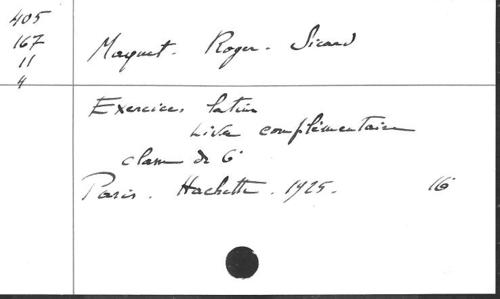 405
167
11
4
Maquet. Roger. Sicard
Exercices latins
Livre complémentaire
classe de 6e
Paris. Hachette. 1925. 16°